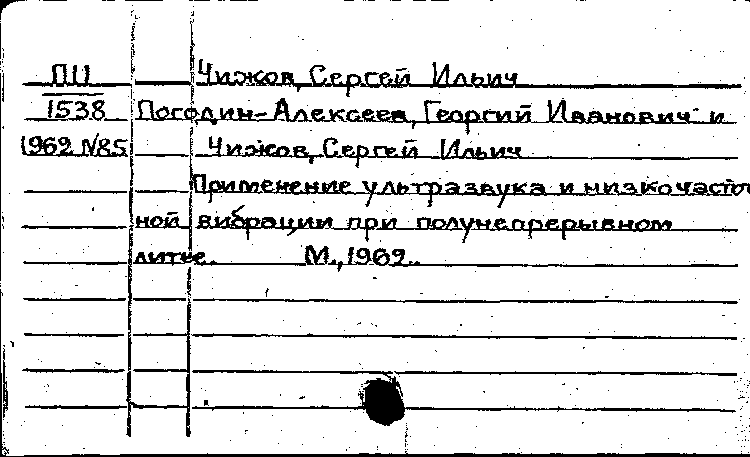 П11 Чижов, Сергей Ильич
1538 Погодин-Алексеев, Георгий Иванович и
1962 №85 Чижов, Сергей Ильич
Применение ультразвука и низкочастот
ной вибрации при полунепрерывном
литье. М., 1962.